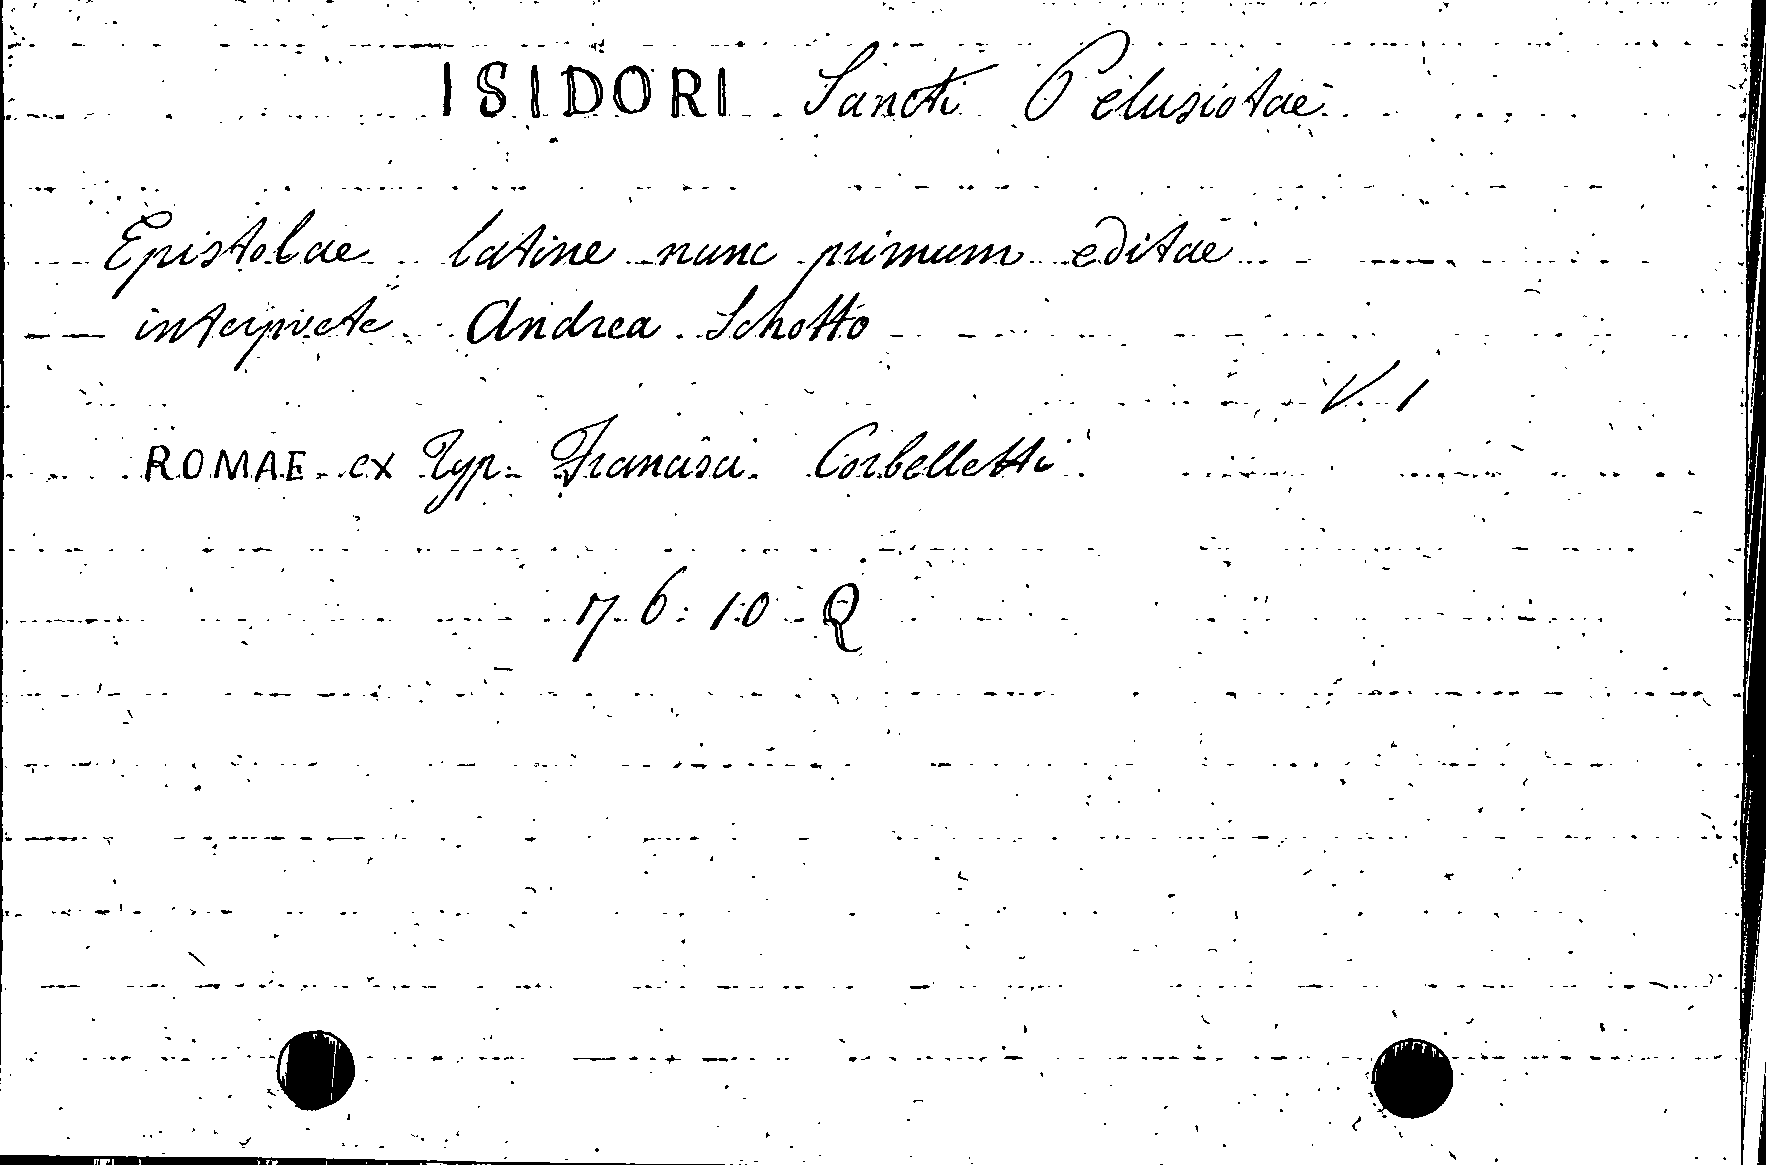 ISIDORI Sancti Pelusiotae
Epistolae latine nunc primum editae
interprete Andrea Schotto
V. 1
ROMAE ex Typ. Francisci Corbelletti
76.10 Q